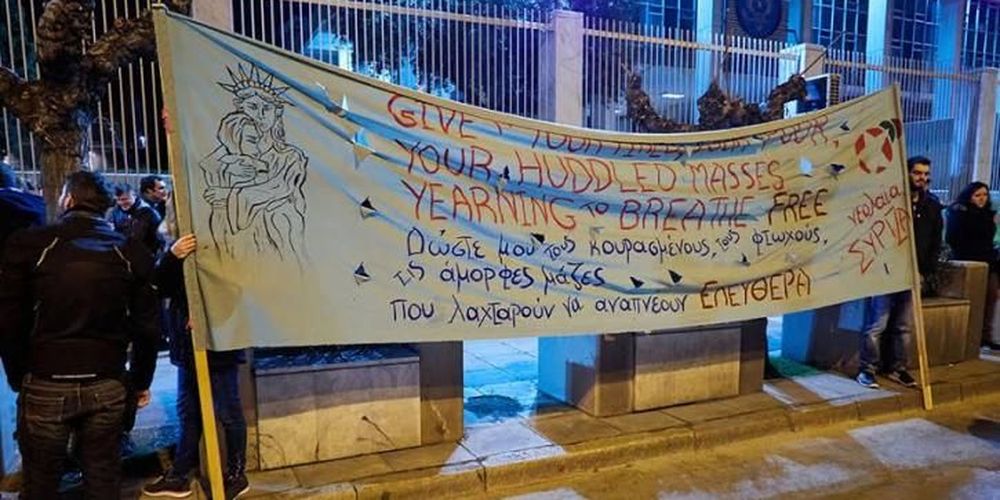 GIVE YOUR TIRED, YOUR POOR,
YOUR HUDDLED MASSES
YEARNING TO BREATHE FREE
Δώστε μου τους κουρασμένους, τους φτωχούς,
τις άμορφες μάζες
που λαχταρούν να αναπνέουν ΕΛΕΥΘΕΡΑ
νεολαία
ΣΥΡΙΖΑ